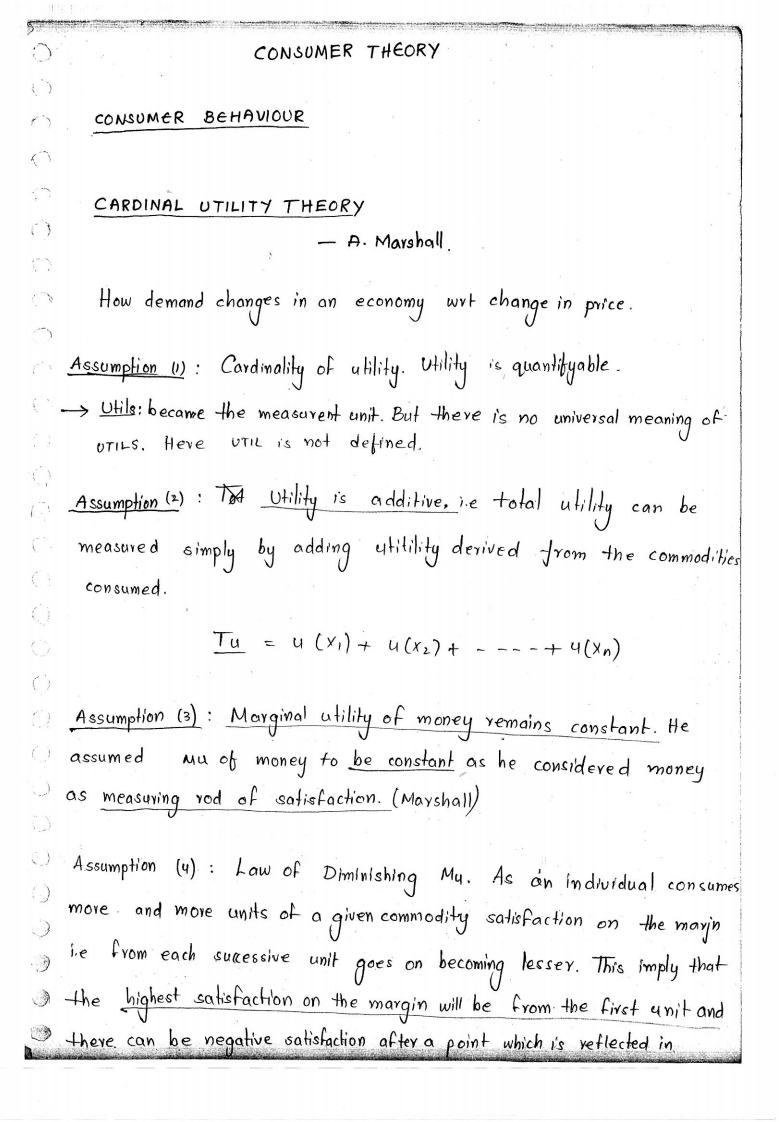 CONSUMER THEORY
CONSUMER BEHAVIOUR
CARDINAL UTILITY THEORY
— A. Marshall.
How demand changes in an economy wrt change in price.
Assumption (1) : Cardinality of utility. Utility is quantifyable.
→ Utils: became the measurent unit. But there is no universal meaning of
UTILS. Here UTIL is not defined.
Assumption (2) : Utility is additive, i.e total utility can be
measured simply by adding utitility derived from the commodities
consumed.
Tu = u (x₁) + u(x₂) + - - - - + u(xn)
Assumption (3) : Marginal utility of money remains constant. He
assumed Mu of money to be constant as he considered money
as measuring rod of satisfaction. (Marshall)
Assumption (4) : Law of Diminishing Mu. As an individual consumes
more and more units of a given commodity satisfaction on the marjn
i.e from each successive unit goes on becoming lesser. This imply that
the highest satisfaction on the margin will be from the first unit and
there can be negative satisfaction after a point which is reflected in